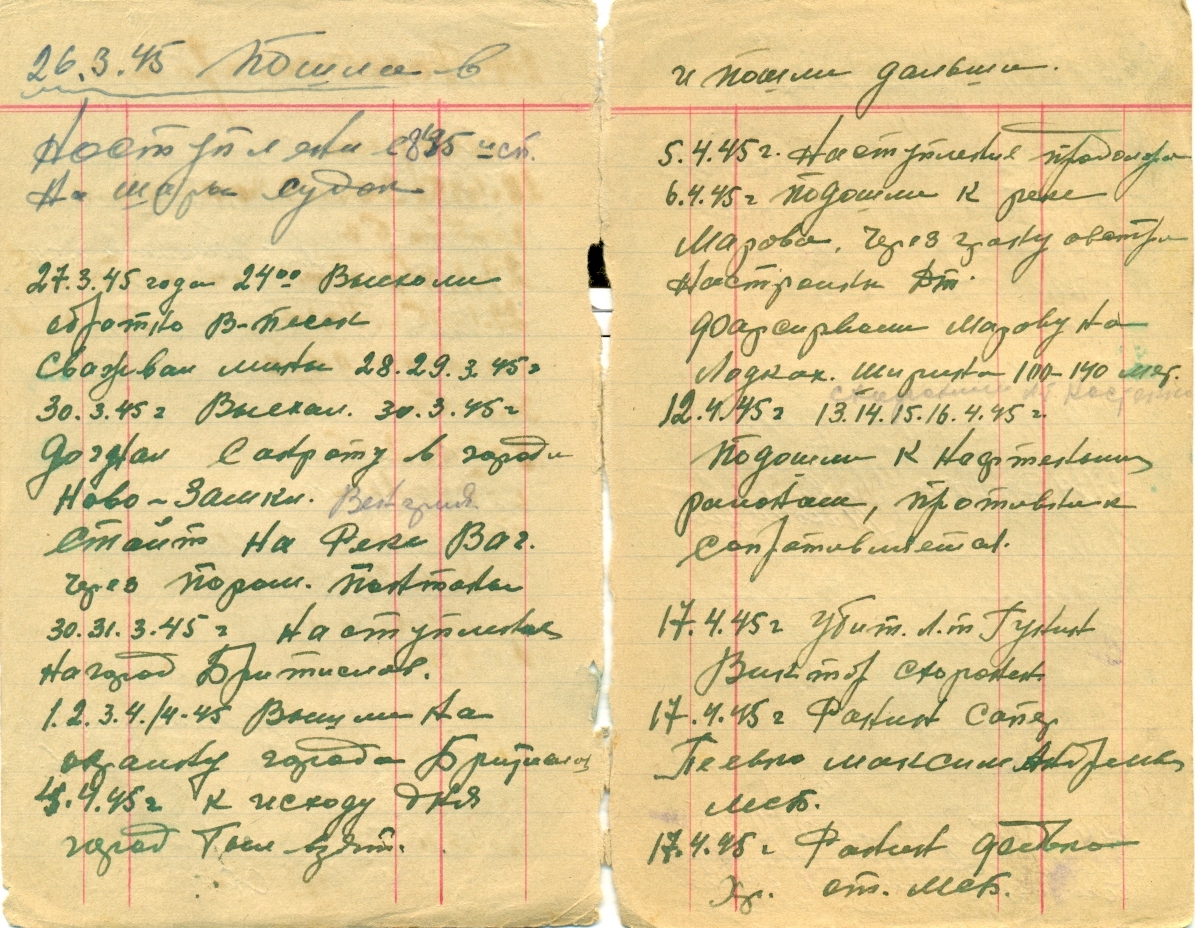 26.3.45 Пошли в
Наступлени с 895 исп.
На шары судон
27.3.45 года 24⁰⁰ Выехали
обратно В-Песек
Сваживал мины 28.29.3.45г
30.3.45г Выехал. 30.3.45г
Догнал в городе
Ново-Замки. Венгрия
стаит на Реки Ваг.
через Паром. Пантоны
30.31.3.45г Наступление
на город Братислав.
1.2.3.4./4-45 Вышли на
окраину города Братислав
4.4.45г к исходу дня
город был взят.
и пошли дальши.
5.4.45г. Наступление продолж
6.4.45г Подошли к реке
Марова, через границу австри
Форсировали Марову на
Лодках. Ширина 100-140 мет.
12.4.45г 13.14.15.16.4.45г.
Подошли к Нефтеным
районам, противник
сопротивляется.
17.4.45г Убит. Л.т Гунин
Виктор схоронен
17.4.45г Ранин Сапер
Певно максим Андреевич
МСБ.
17.4.45г Ранин
Хр. ст. МСБ.